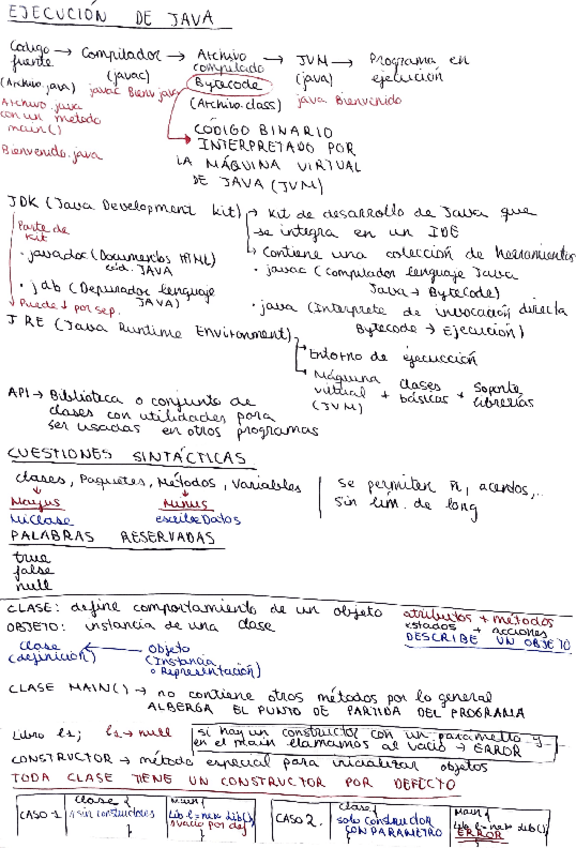 EJECUCIÓN DE JAVA
Código fuente → Compilador → Archivo compilado → JVM → Programa en ejecución
(javac) Bytecode (java)
(Archivo.java) javac Bienv.java (Archivo.class) java Bienvenido
Archivo.java
con un método
main()
Bienvenido.java
CÓDIGO BINARIO
INTERPRETADO POR
LA MÁQUINA VIRTUAL
DE JAVA (JVM)
JDK (Java Development kit) → Kit de desarrollo de Java que
se integra en un IDE
↳ Contiene una colección de herramientas
Parte de
kit
· javadoc (Documentos HTML)
cód. JAVA
· jdb (Depurador lenguaje
JAVA)
Puede ↓ por sep.
· javac (compilador lenguaje Java
Java → ByteCode)
· java (Intérprete de invocación directa
Bytecode → Ejecución)
JRE (Java Runtime Environment)
→ Entorno de ejecucción
→ Máquina virtual (JVM) + clases básicas + Soporte librerías
API → Biblioteca o conjunto de
clases con utilidades para
ser usadas en otros programas
CUESTIONES SINTÁCTICAS
clases, Paquetes, Métodos, Variables
Mayus Minus
MiClase escribeDatos
se permiten ñ, acentos,..
sin lím. de long
PALABRAS RESERVADAS
true
false
null
CLASE: define comportamiento de un objeto atributos + métodos
OBJETO: instancia de una clase estados + acciones
DESCRIBE UN OBJETO
clase ← objeto
(definición) (Instancia
o Representación)
CLASE MAIN() → no contiene otros métodos por lo general
ALBERGA EL PUNTO DE PARTIDA DEL PROGRAMA
Libro l1; l1 → null
si hay un constructor con un parámetro y
en el main llamamos al vacío → ERROR
CONSTRUCTOR → método especial para inicializar objetos
TODA CLASE TIENE UN CONSTRUCTOR POR DEFECTO
CASO 1
clase {
sin constructores
}
Main {
Lib l=new lib()
vacío por def
}
CASO 2.
clase {
solo constructor
CON PARÁMETRO
}
Main {
Lib l=new lib()
ERROR
}